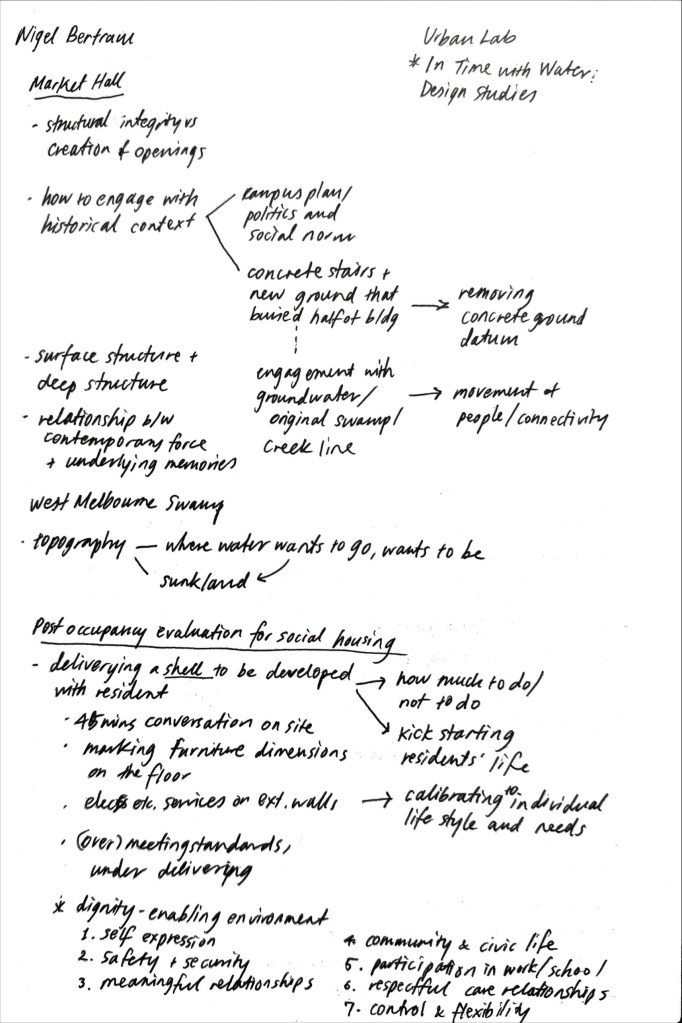 Nigel Bertram
Urban Lab
* In Time with Water:
Design Studies
Market Hall
- structural integrity vs
creation of openings
- how to engage with
historical context
campus plan/
politics and
social norm
concrete stairs +
new ground that
buried half of bldg
removing
concrete ground
datum
engagement with
groundwater/
original swamp/
creek line
movement of
people/connectivity
- surface structure +
deep structure
- relationship b/w
contemporary force
+ underlying memories
West Melbourne Swamp
- topography — where water wants to go, wants to be
sunkland
Post occupancy evaluation for social housing
- deliverying a shell to be developed
with resident
how much to do/
not to do
kick starting
residents' life
- 45mins conversation on site
- marking furniture dimensions
on the floor
- elecs etc. services on ext. walls
calibrating to individual
life style and needs
- (over) meeting standards,
under delivering
* dignity-enabling environment
1. self expression
2. safety + security
3. meaningful relationships
4. community & civic life
5. participation in work/school
6. respectful care relationships
7. control & flexibility